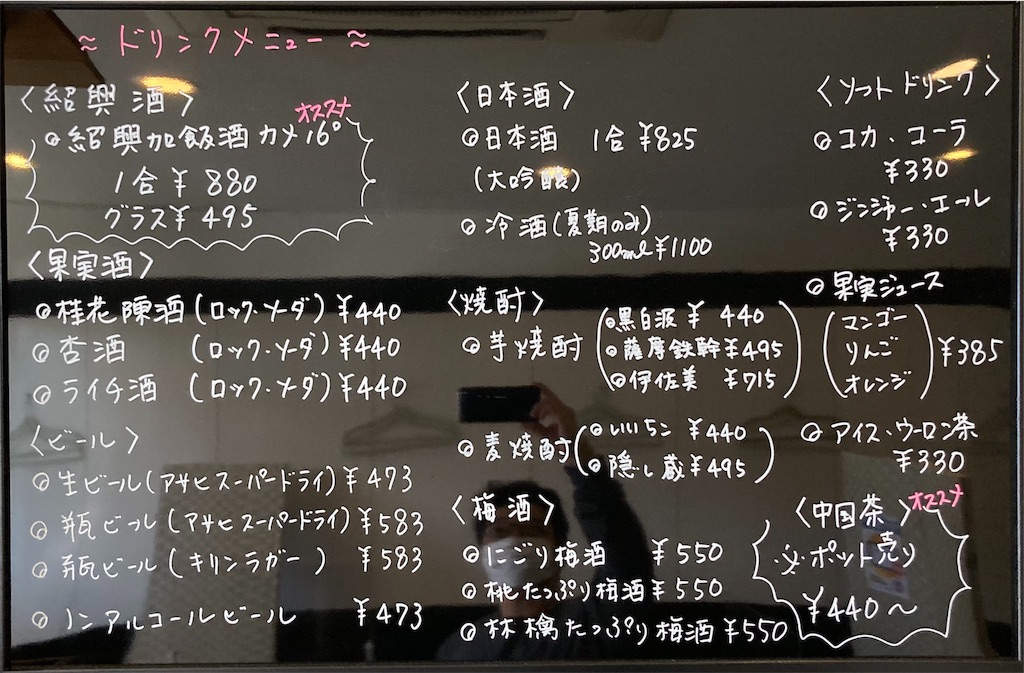 ≈ ドリンクメニュー ≈
〈紹興酒〉
オススメ
◎紹興加飯酒カメ16°
1合￥880
グラス￥495
〈果実酒〉
◎桂花陳酒(ロック・ソーダ)￥440
◎杏酒 (ロック・ソーダ)￥440
◎ライチ酒 (ロック・ソーダ)￥440
〈ビール〉
◎生ビール(アサヒスーパードライ)￥473
◎瓶ビール(アサヒスーパードライ)￥583
◎瓶ビール(キリンラガー) ￥583
◎ノンアルコールビール ￥473
〈日本酒〉
◎日本酒 1合￥825
(大吟醸)
◎冷酒(夏期のみ)
300ml￥1100
〈焼酎〉
◎芋焼酎
◎黒白波 ￥440
◎薩摩鉄幹￥495
◎伊佐美 ￥715
◎麦焼酎
◎いいちこ ￥440
◎隠し蔵￥495
〈梅酒〉
◎にごり梅酒 ￥550
◎桃たっぷり梅酒￥550
◎林檎たっぷり梅酒￥550
〈ソフトドリンク〉
◎コカ・コーラ
￥330
◎ジンジャー・エール
￥330
◎果実ジュース
マンゴー
りんご
オレンジ
￥385
◎アイス・ウーロン茶
￥330
〈中国茶〉
オススメ
※ポット売り
￥440〜